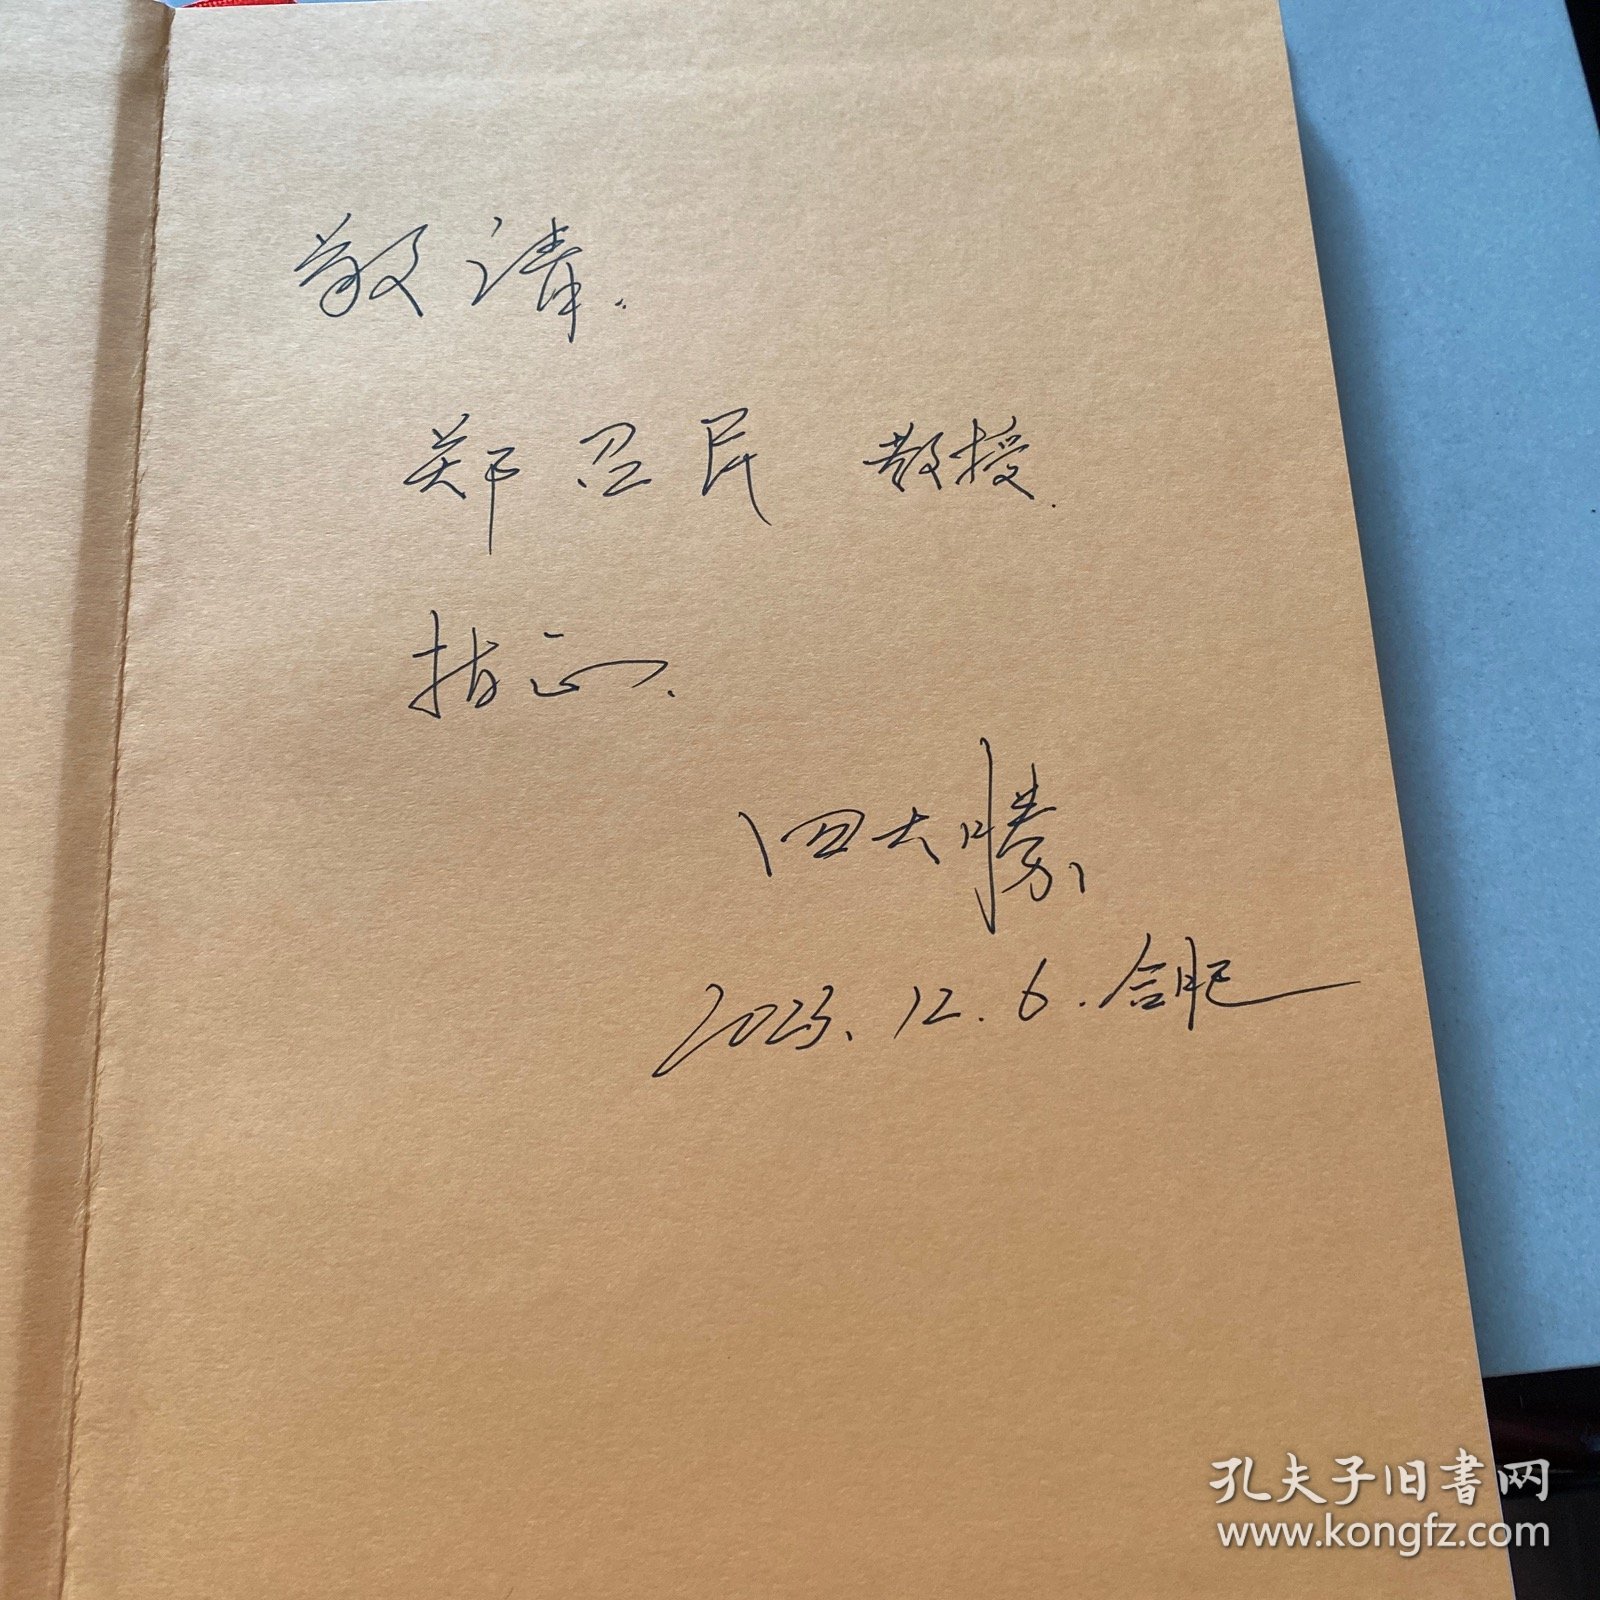 敬请.
郑卫民 教授.
指正.
田大胜
2023.12.6.合肥
孔夫子旧书网
www.kongfz.com